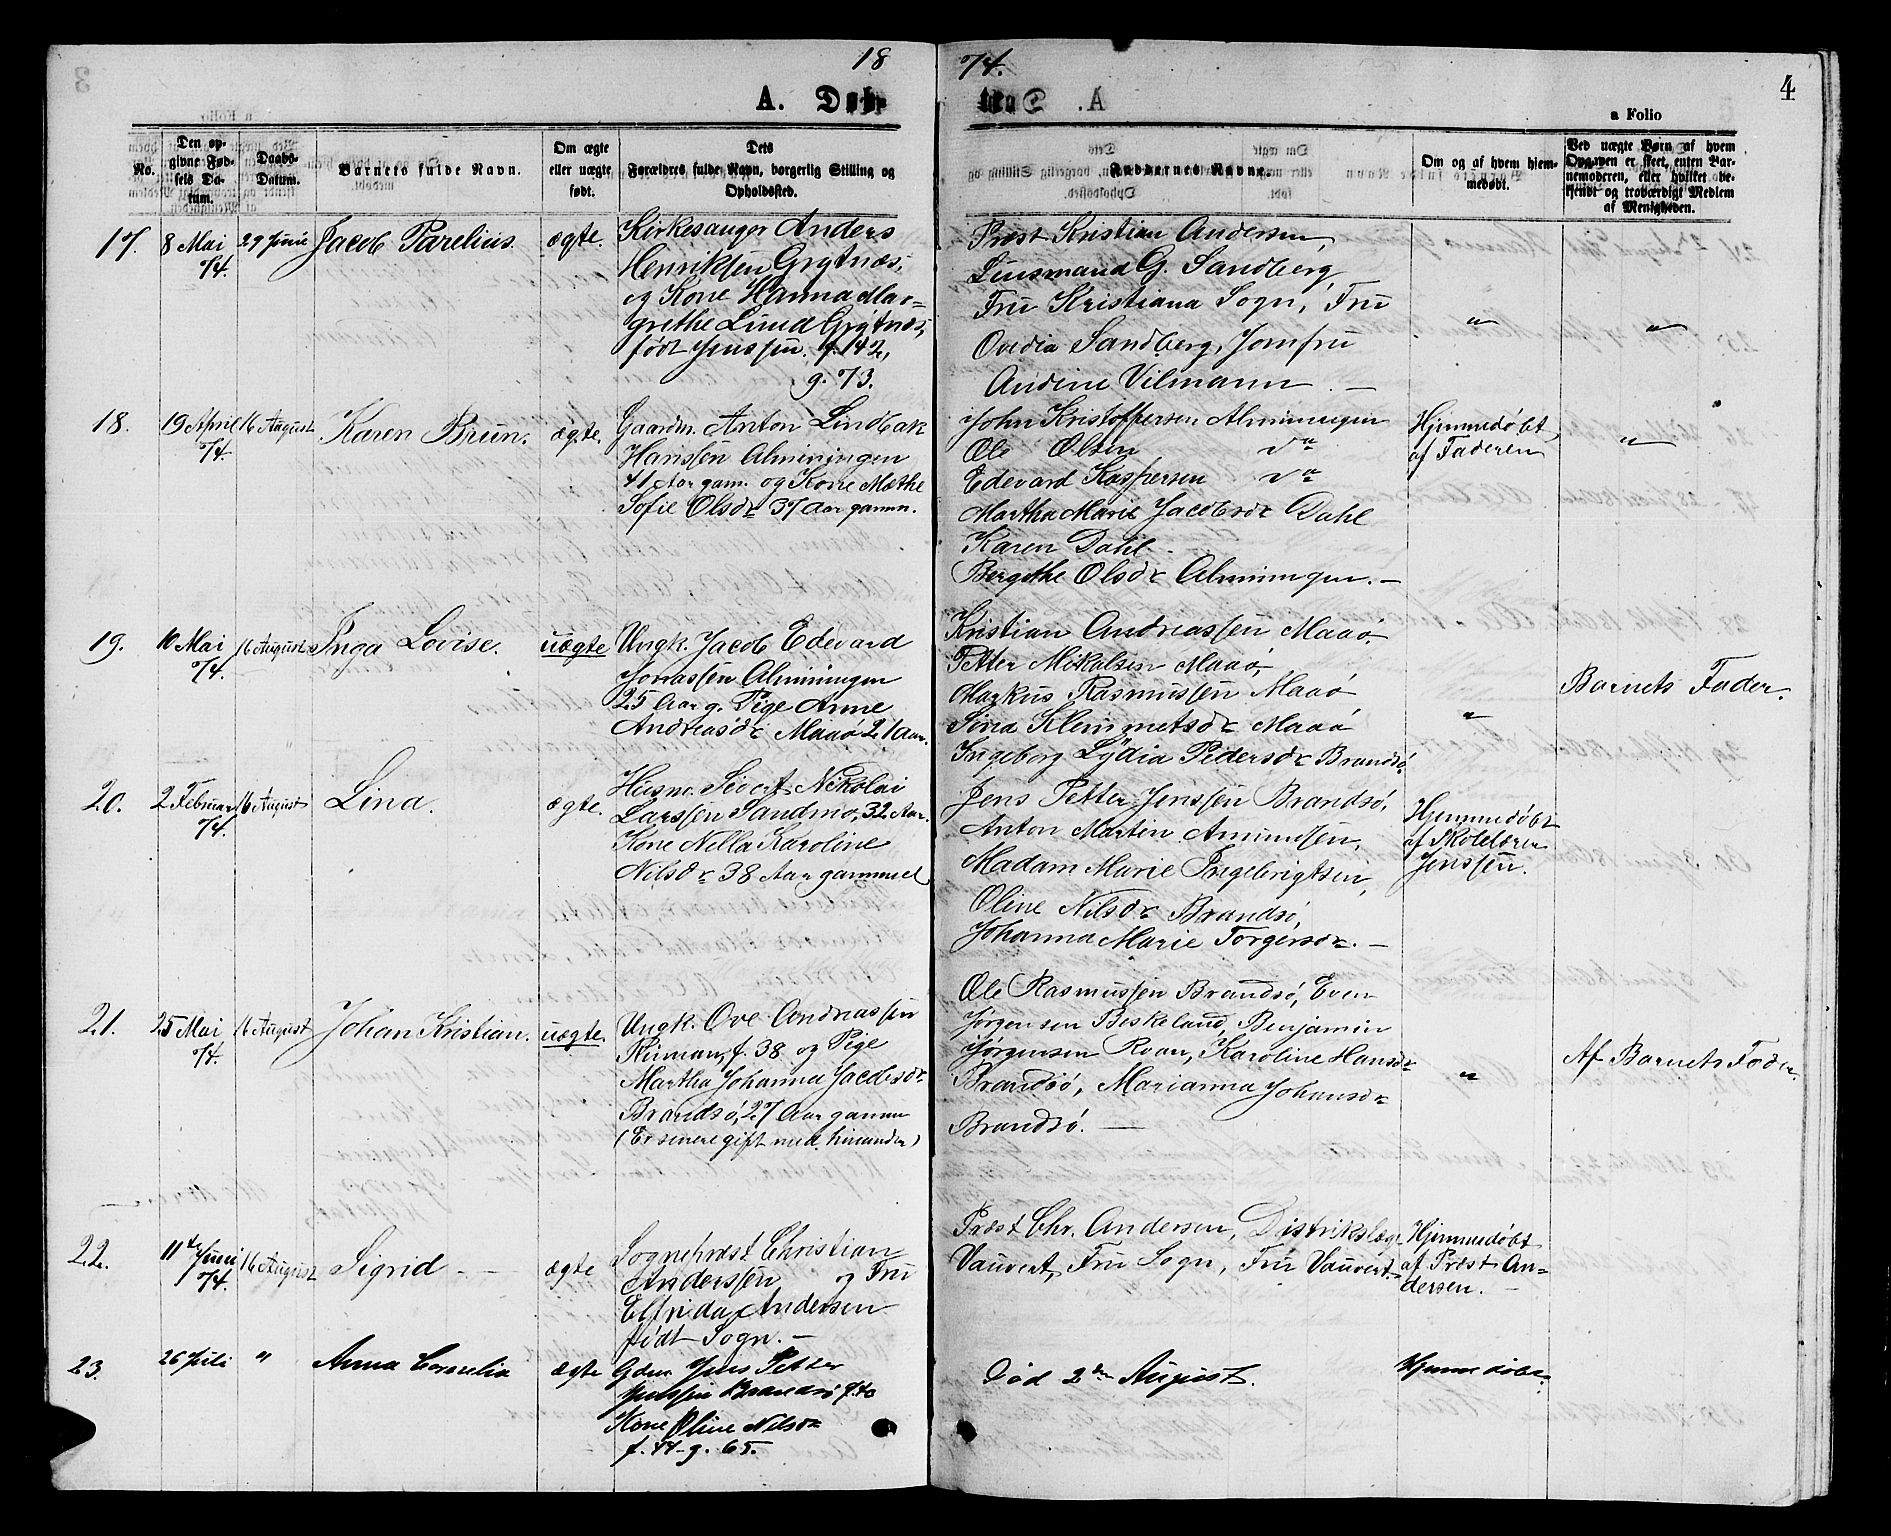 18 74.
4
A. Døbte
a Folio
No.
Den opgivne Fødsels Datum.
Daabs-Datum.
Barnets fulde Navn.
Om ægte eller uægte født.
Dets Forældres fulde Navn, borgerlig Stilling og Opholdssted.
Faddernes Navne.
Om og af hvem hjemmedøbt.
Ved uægte Børn af hvem Opgaven er skeet, enten Barnemoderen, eller hvilket bekjendt og troværdigt Medlem af Menigheden.
17. 8 Mai 74. 29 Juni Jacob Parelius. ægte.
Kirkesanger Anders
Henriksen Grytnæs,
og Kone Hanna Mar-
grethe Lund Grytnæs,
født Jenssen. f. 42,
g. 73.
Præst Kristian Andersen,
Lensmand G. Sandberg,
Fru Kristiana Sogn, Fru
Ovedia Sandberg, Jomfru
Andine Vilmann. —
"
"
18. 19 April 74. 16 August Karen Brun. ægte.
Gaardm. Anton Lindbak
Hanssen Almningen
41 Aar gam. og Kone Mæthe
Sofie Olsdr 37 Aar gamm.
John Kristoffersen Almningen
Ole Olsen do
Edevard Kaspersen do
Martha Marie Jacobsdr Dahl
Karen Dahl.
Bergithe Olsdr Almningen. —
Hjemmedøbt
af Faderen
"
19. 10 Mai 74. 16 August Inga Lovise. uægte
Ungk. Jacob Edevard
Jonassen Almningen
25 Aar g. Pige Anne
Andreasdr Maaø 21 Aar.
Kristian Andreassen Maaø.
Petter Mikalsen Maaø,
Markus Rasmussen Maaø
Sina Klemmetsdr Maaø
Ingeborg Lydia Pedersdr Brandsø
"
Barnets Fader.
20. 2 Februar 74. 16 August Lina. ægte.
Husm. Sivert Nikolai
Larssen Sandmo, 32 Aar.
Kone Nella Karoline
Nilsdr 38 Aar gammel
Jens Petter Jenssen Brandsø,
Anton Martin Amundsen,
Madam Marie Ingebrigtsen,
Oline Nilsdr Brandsø,
Johanna Marie Torgersdr. —
Hjemmedøbt
af Skolelærer
Jenssen.
21. 25 Mai 74. 16 August Johan Kristian. uægte.
Ungk. Ove Andreassen
Nirman, f. 38 og Pige
Martha Johanna Jacobsdr
Brandsø, 27 Aar gamm
(Er senere gift med hinanden)
Ole Rasmussen Brandsø, Even
Jørgensen Beskeland, Benjamin
Jørgensen Roan, Karoline Hansdr
Brandsø, Marianna Johansdr
Brandsø. —
"
Af Barnets Fader.
22. 11te Juni 74. 16 August Sigrid — ægte
Sognepræst Christian
Anderssen og Fru
Elfrida Andersen
født Sogn. —
Præst Chr. Andersen, Distriktslæge
Vauvert, Fru Sogn, Fru Vauvert. —
Hjemmedøbt
af Præst An-
dersen. —
23. 26 Juli " Anna Cornelia ægte
Gdm. Jens Petter
Jenssen Brandsø f. 40
Kone Oline Nilsdr
f. 44 - g. 65.
Død 2den August.
Hjemmedøbt.